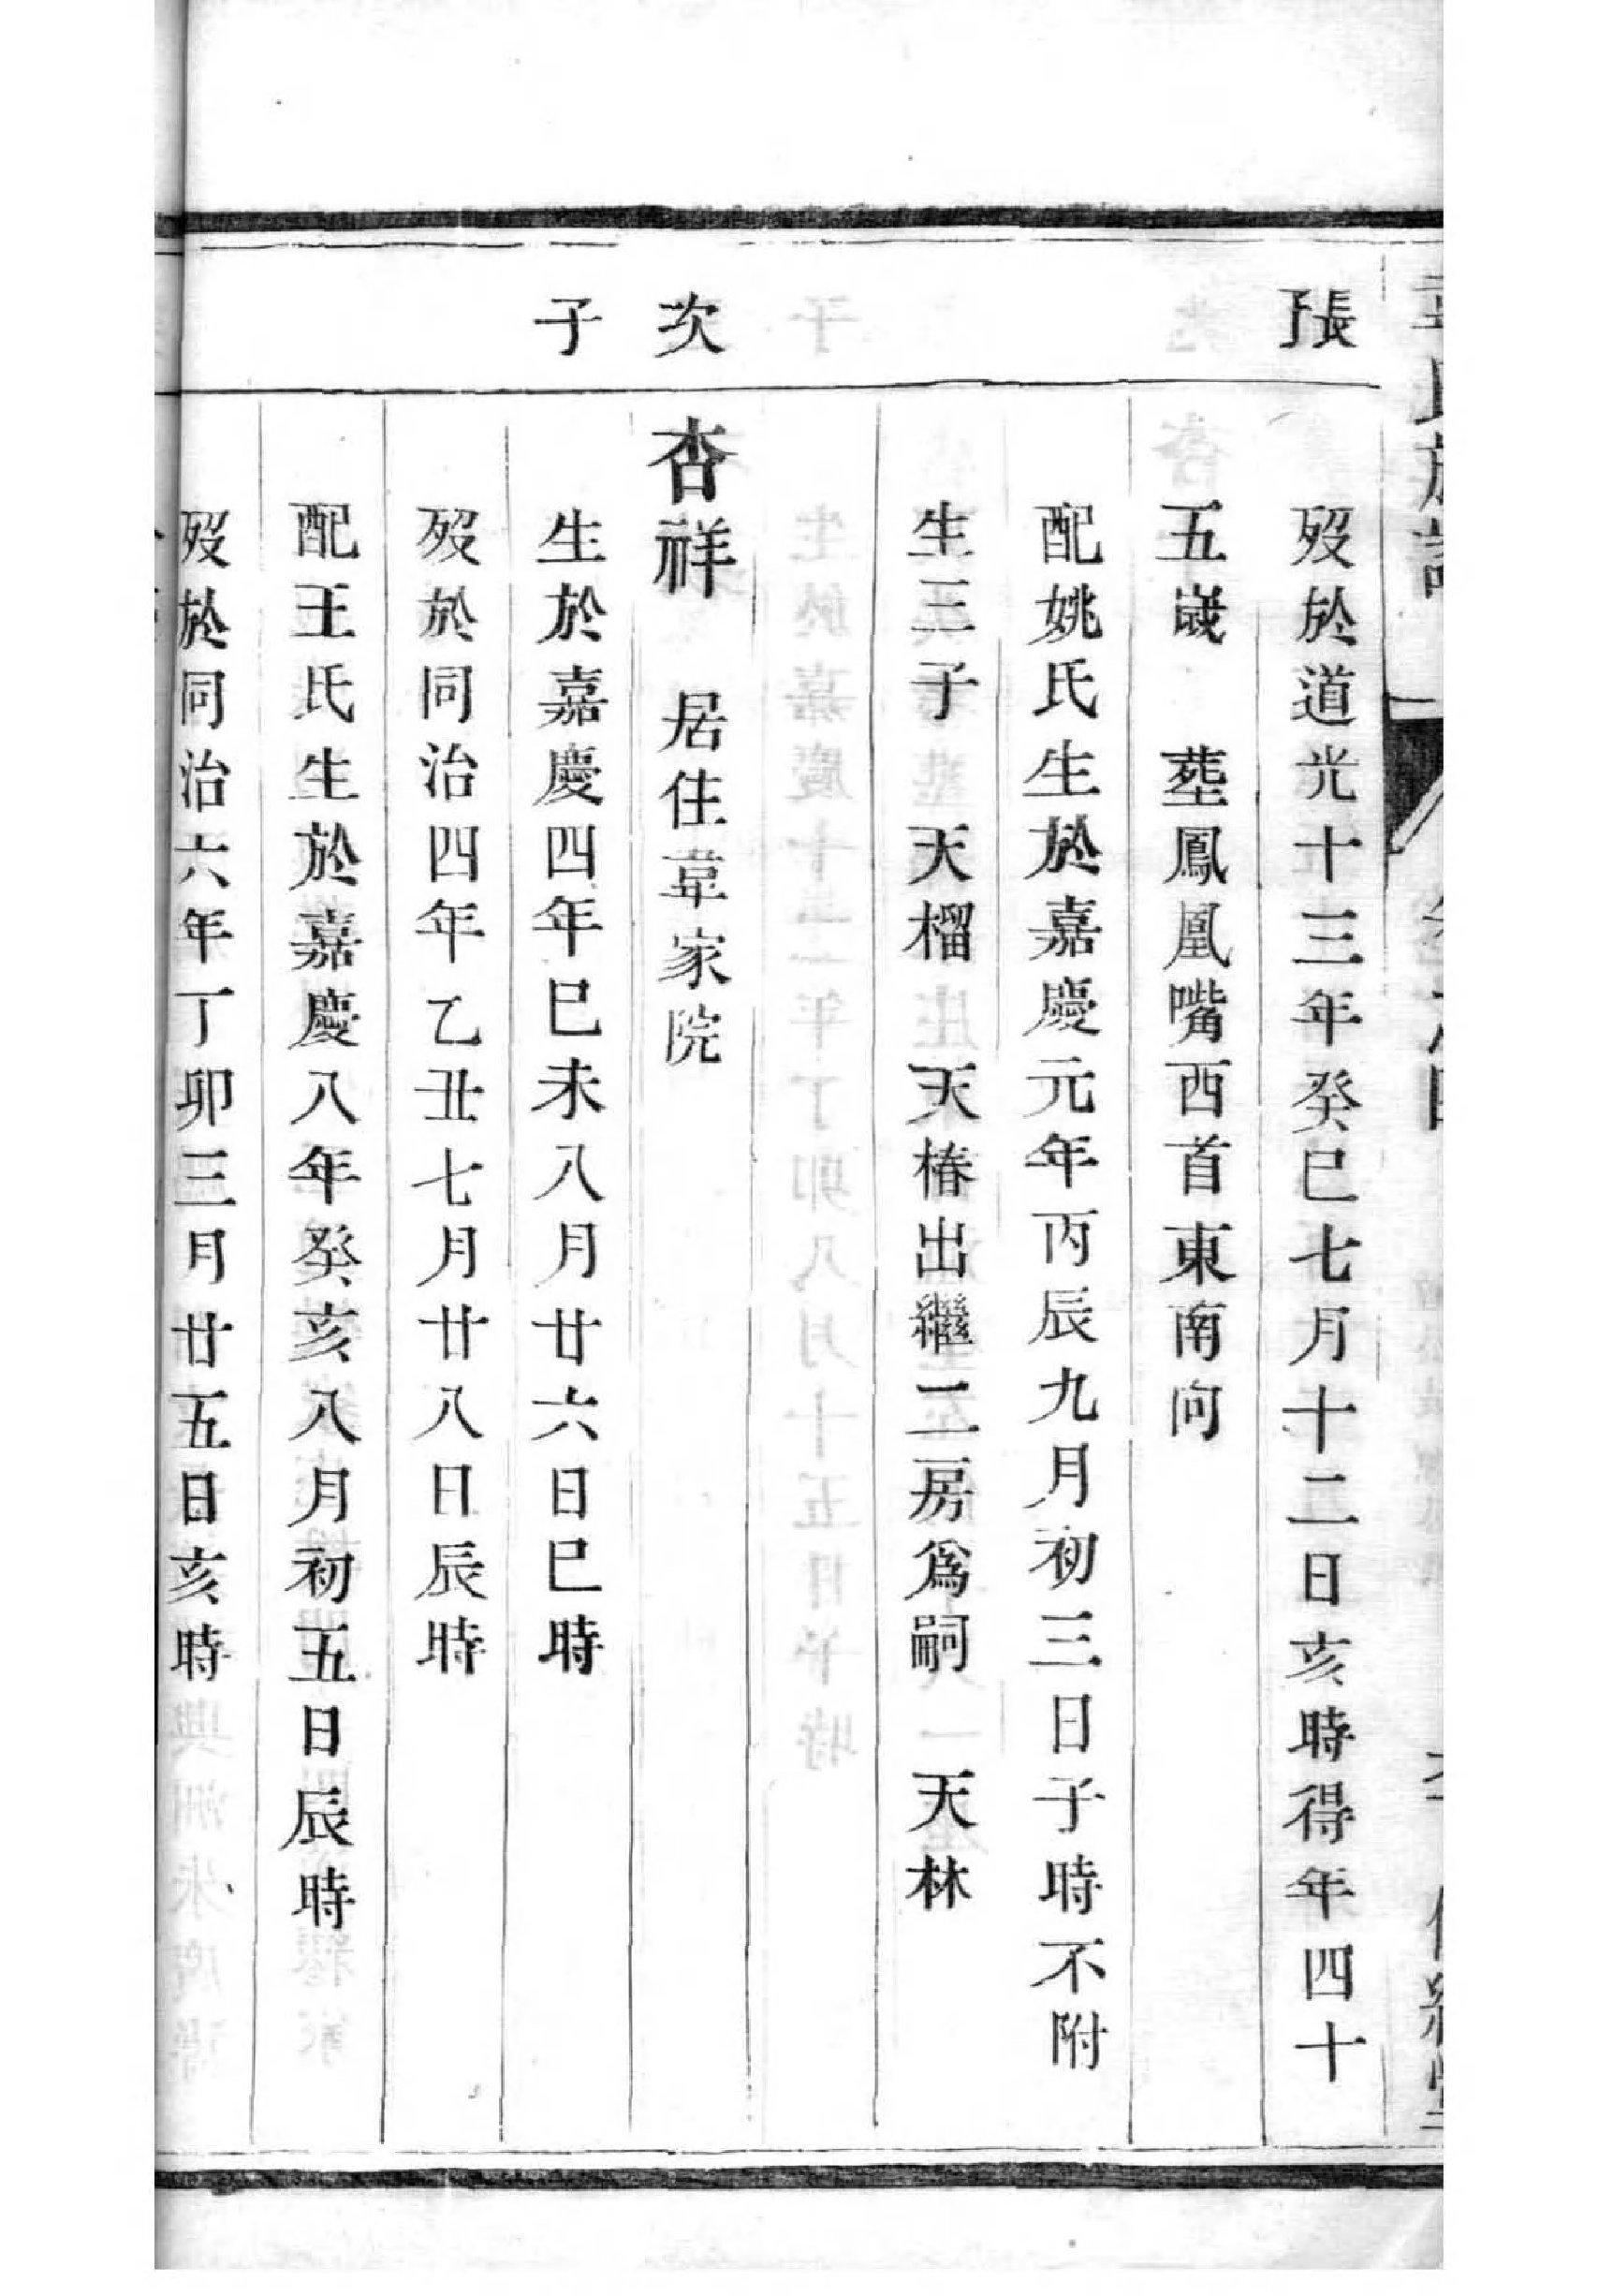 張
歿於道光十三年癸巳七月十二日亥時得年四十
五嵗　塟鳳凰嘴西首東南向
配姚氏生於嘉慶元年丙辰九月初三日子時不附
生三子　天榴　天椿出繼二房爲嗣　天林
次
杏祥　居住韋家院
子
生於嘉慶四年巳未八月廿六日巳時
歿於同治四年乙丑七月廿八日辰時
配王氏生於嘉慶八年癸亥八月初五日辰時
歿於同治六年丁卯三月廿五日亥時